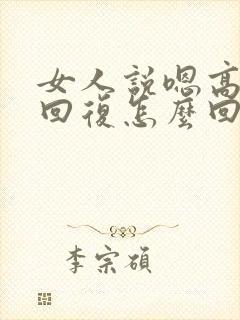 女人說嗯高
回復怎麼回
李宗碩